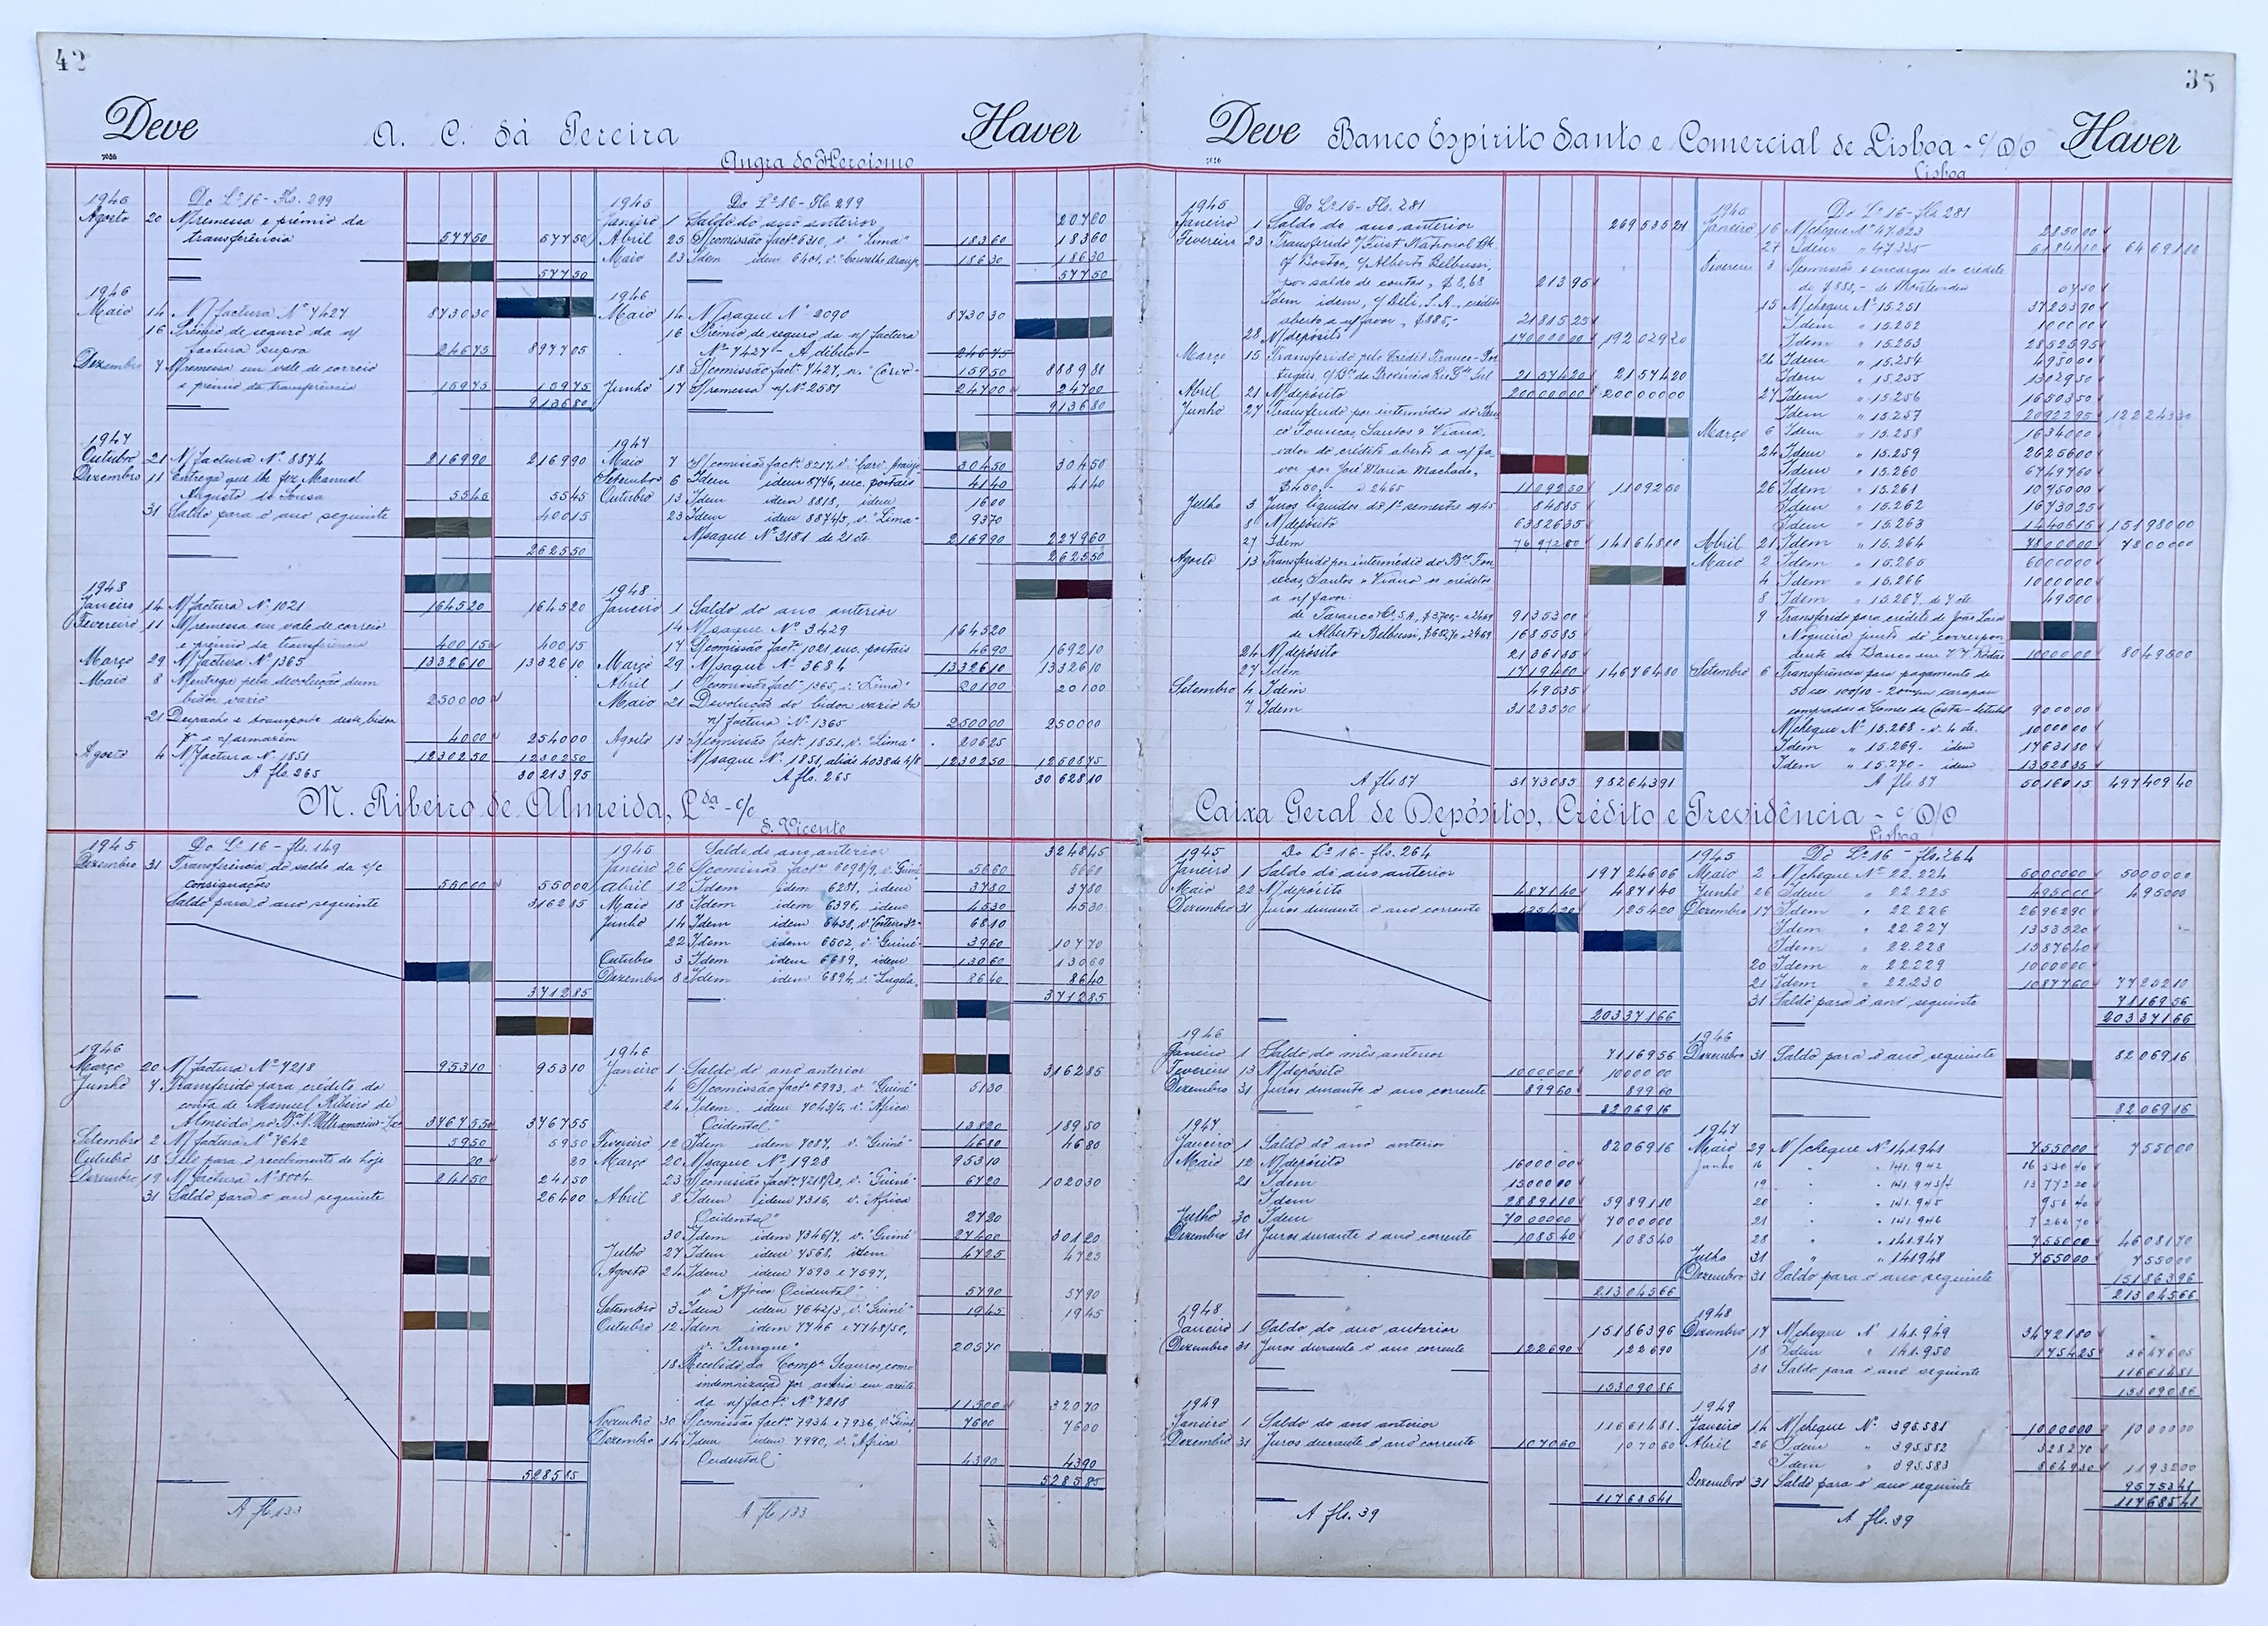 42
Deve A. C. Sá Pereira Haver
Angra do Heroísmo
1945 Do Lº 16 - Fls. 299
Agosto 20 N/remessa e prémio da
transferência 57750 57750
57750
1946
Maio 14 N/ factura Nº 7427 873030
16 Prémio de seguro da n/
factura supra 24675 897705
Dezembro 7 N/remessa em vale de correio
e prémio da transferência 15975 15975
913680
1947
Outubro 21 N/ factura Nº 8874 216990 216990
Dezembro 11 Entrega que lhe fez Manuel
Augusto de Sousa 5545 5545
31 Saldo para o ano seguinte 40015
262550
1948
Janeiro 14 N/ factura Nº 1021 164520 164520
Fevereiro 11 N/remessa em vale de correio
e prémio da transferência 40015 40015
Março 29 N/ factura Nº 1365 1332610 1332610
Maio 8 N/entrega pela devolução dum
bidon vazio 250000
21 Despacho e transporte deste bidon
n/armazém 4000 254000
Agosto 4 N/ factura Nº 1851 1230250 1230250
A fls. 265 3021395
1945 Do Lº 16 - Fls. 299
Janeiro 1 Saldo do ano anterior 20760
Abril 25 S/comissão factª 6210, v. "Lima" 18360 18360
Maio 23 Idem idem 6401, v. "Carvalho Araujo" 18630 18630
57750
1946
Maio 14 N/saque Nº 2090 873030
16 Prémio de seguro da n/ factura
Nº 7427 - A débito - 24675
18 S/comissão factª 7427, n. "Corvo" 15950 888980
Junho 17 S/remessa n/Nº 2587 24700 24700
913680
1947
Maio 7 S/comissão factª 8217, v. "Carv. Araujo" 30450 30450
Setembro 6 Idem idem 8746, enc. postais 4140 4140
Outubro 13 Idem idem 8818, idem 1600
23 Idem idem 8874/5, v. "Lima" 9370
N/saque Nº 3181 de 21 cte 216990 227960
262550
1948
Janeiro 1 Saldo do ano anterior
14 N/saque Nº 3429 164520
17 S/comissão factª 1021 enc. postais 4690 169210
Março 29 N/saque Nº 3684 1332610 1332610
Abril 1 S/comissão factª 1365, v. "Lima" 20100 20100
Maio 21 Devolução do bidon vazio da
n/ factura Nº 1365 250000 250000
Agosto 13 S/comissão factª 1851, v. "Lima" 20625
N/saque Nº 1851, aliás 4038 de 4/8 1230250 1250875
A fls. 265 3062810
M. Ribeiro de Almeida, Lda - c/c
S. Vicente
1945 Do Lº 16 - fls. 149
Dezembro 31 Transferência do saldo da s/c
consignações 55000 55000
Saldo para o ano seguinte 316285
371285
1946
Março 20 N/ factura Nº 7218 95310 95310
Junho 7 Transferido para crédito da
conta de Manuel Ribeiro de
Almeida, no Bco N. Ultramarino 376755 376755
Setembro 2 N/ factura Nº 7642 5950 5950
Outubro 18 Selo para o recebimento de hoje 20 20
Dezembro 19 N/ factura Nº 8004 24150 24150
31 Saldo para o ano seguinte 26400
528585
A fls. 133
1945 Saldo do ano anterior 324845
Janeiro 26 S/comissão factª 6098/9, v. "Guiné" 5660 5660
Abril 12 Idem idem 6251, idem 3780 3780
Maio 18 Idem idem 6396, idem 4530 4530
Junho 14 Idem idem 6458, v. 6810
22 Idem idem 6502, v. "Guiné" 3960 10770
Outubro 3 Idem idem 6689, idem 13060 13060
Dezembro 8 Idem idem 6894, v. "Lugela" 8640 8640
371285
1946
Janeiro 1 Saldo do ano anterior 316285
4 S/comissão factª 6993, v. "Guiné" 5130
24 Idem idem 7043/5, v. "Africa
Ocidental" 13820 18950
Fevereiro 12 Idem idem 7087, v. "Guiné" 4680 4680
Março 20 N/saque Nº 1928 95310
23 S/comissão factª 7218/23, v. "Guiné" 6720 102030
Abril 8 Idem idem 7316, v. "Africa
Ocidental" 2720
30 Idem idem 7346/7, v. "Guiné" 27400 30120
Julho 27 Idem idem 7568, idem 4725 4725
Agosto 24 Idem idem 7593 e 7597,
v. "Africa Ocidental" 5790 5790
Setembro 3 Idem idem 7642/3, v. "Guiné" 1945 1945
Outubro 12 Idem idem 7746 e 7748/50,
v. "Pungue" 20570
18 Recebido da Compª Seguros, como
indemnização por avaria em azeite
da n/ factª Nº 7218 11500 32070
Novembro 30 S/comissão factª 7934 e 7936, v. "Guiné" 7600 7600
Dezembro 14 Idem idem 7990, v. "Africa
Ocidental" 4390 4390
528585
A fls. 133
35
Deve Banco Espírito Santo e Comercial de Lisboa - c/ D/O Haver
Lisboa
1945 Do Lº 16 - Fls. 281
Janeiro 1 Saldo do ano anterior 26953521
Fevereiro 23 Transferido p/ First National Bk.
of Boston, c/ Alberto Belbussi,
por saldo de contas, $8,68 21395
Idem idem, c/ Deli. S.A., crédito
aberto a n/ favor, $885,- 2181525
28 N/depósito 17000000 19202920
Março 15 Transferido pelo Credit Franco-Por
tugais, 2157420 2157420
Abril 21 N/depósito 20000000 20000000
Junho 27 Transferido por intermédio do Ban
co Fonsecas, Santos & Viana,
valor do crédito aberto a n/ fa
vor por José Maria Machado,
$450,- a 2465 1109250 1109250
Julho 3 Juros líquidos do 1º semestre 1945 84885
8 N/depósito 6382635
27 Idem 7697280 14164800
Agosto 13 Transferido por intermédio do Bco Fon
secas, Santos & Viana os créditos
a n/ favor:
de Taranco & C. S.A., $3700,- a 2469 9135300
de Alberto Belbussi, $682,70 a 2469 1685585
24 N/depósito 2136135
27 Idem 1719460 14676480
Setembro 4 Idem 49535
7 Idem 3123550
A fls. 87 3173085 98264391
1945 Do Lº 16 - fls. 281
Janeiro 16 N/cheque Nº 47.323 285000
27 Idem " 47.325 6184110 6469110
Fevereiro 3 S/comissão e encargos do crédito
de $885,- de Montevideo 6750
15 N/cheque Nº 15.251 3725390
Idem " 15.252 100000
Idem " 15.253 2852595
26 Idem " 15.254 495000
Idem " 15.255 1302950
27 Idem " 15.256 1650350
Idem " 15.257 2092295 12224330
Março 6 Idem " 15.258 1634000
24 Idem " 15.259 2625600
Idem " 15.260 6749760
26 Idem " 15.261 1075000
Idem " 15.262 1673025
Idem " 15.263 1440615 15198000
Abril 21 Idem " 15.264 7800000 7800000
Maio 2 Idem " 15.265 6000000
4 Idem " 15.266 1000000
8 Idem " 15.267, de 7 cte 49500
9 Transferido para crédito de João Lara
Nogueira junto do correspon
dente do Banco em 1000000 8049500
Setembro 6 Transferência para pagamento de
50 cxs. 100/10 - 20m/m carapau
compradas a Gomes da Costa - Setubal 900000
N/cheque Nº 15.268 - v. 4 cte. 1000000
Idem " 15.269 - idem 1763180
Idem " 15.270 - idem 1352835
A fls 87 5016015 49740940
Caixa Geral de Depósitos, Crédito e Previdência - c/ D/O
Lisboa
1945 Do Lº 16 - fls. 264
Janeiro 1 Saldo do ano anterior 19724606
Maio 22 N/depósito 487140 487140
Dezembro 31 Juros durante o ano corrente 125420 125420
20337166
1946
Janeiro 1 Saldo do mês anterior 7116956
Fevereiro 13 N/depósito 1000000 1000000
Dezembro 31 Juros durante o ano corrente 89960 89960
8206916
1947
Janeiro 1 Saldo do ano anterior 8206916
Maio 12 N/depósito 1600000
21 Idem 1500000
Idem 2889110 5989110
Julho 30 Idem 7000000 7000000
Dezembro 31 Juros durante o ano corrente 108540 108540
21304566
1948
Janeiro 1 Saldo do ano anterior 15186396
Dezembro 31 Juros durante o ano corrente 122690 122690
15309086
1949
Janeiro 1 Saldo do ano anterior 11661481
Dezembro 31 Juros durante o ano corrente 107060 107060
11768541
A fls. 39
1945 Do Lº 16 - fls. 264
Maio 2 N/cheque Nº 22.224 5000000 5000000
Junho 26 Idem " 22.225 495000 495000
Dezembro 17 Idem " 22.226 2696290
Idem " 22.227 1353520
Idem " 22.228 1587640
20 Idem " 22229 1000000
21 Idem " 22.230 1087760 7725210
31 Saldo para o ano seguinte 7116956
20337166
1946
Dezembro 31 Saldo para o ano seguinte 8206916
8206916
1947
Maio 29 N/cheque Nº 141.941 755000 755000
Junho 16 " " 141.942 1653040
19 " " 141.943/4 1377220
20 " " 141.945 95640
21 " " 141.946 726670
28 " " 141.947 755000 4608170
Julho 31 " " 141948 755000 755000
Dezembro 31 Saldo para o ano seguinte 15186396
21304566
1948
Dezembro 17 N/cheque Nº 141.949 3472180
18 Idem " 141.950 175425 3647605
31 Saldo para o ano seguinte 11661481
15309086
1949
Janeiro 14 N/cheque Nº 395.581 1000000 1000000
Abril 26 Idem " 395.582 328270
Idem " 395.583 864930 1193200
Dezembro 31 Saldo para o ano seguinte 9575341
11768541
A fls. 39